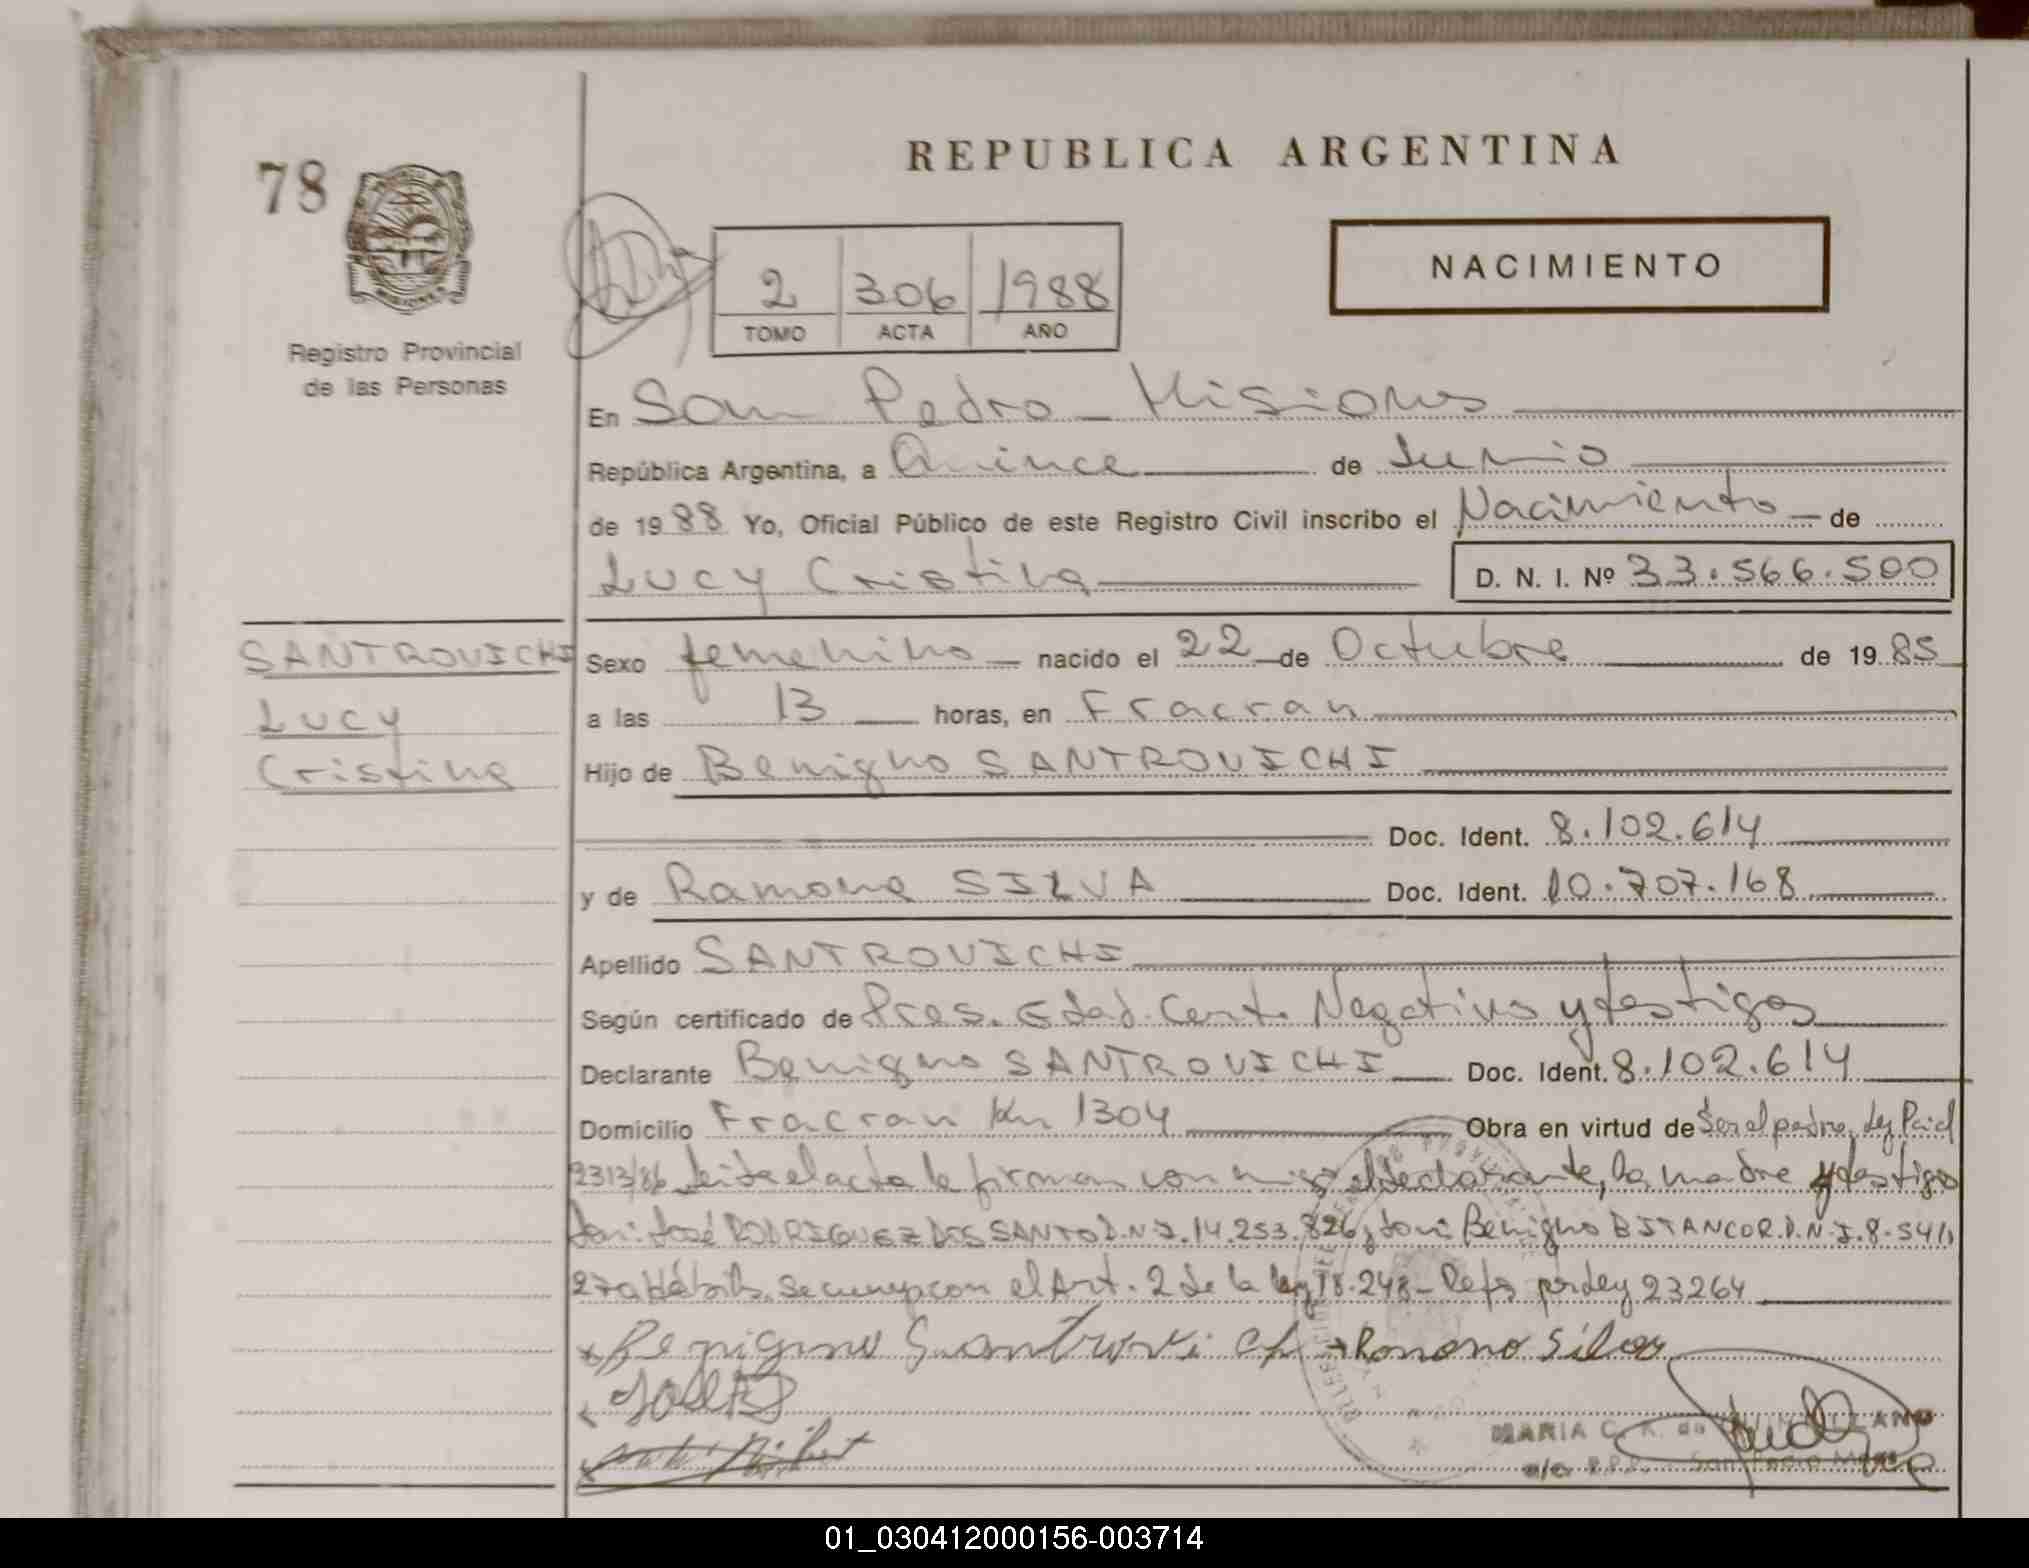 REPUBLICA ARGENTINA
78
NACIMIENTO
2 306 1988
TOMO ACTA AÑO
MISIONES
Registro Provincial
de las Personas
En San Pedro - Misiones
República Argentina, a Quince de Junio
de 1988 Yo, Oficial Público de este Registro Civil inscribo el Nacimiento de
Lucy Cristina D. N. I. Nº 33.566.500
SANTROVICHI
Lucy
Cristina
Sexo femenino nacido el 22 de Octubre de 1985
a las 13 horas, en Fracran
Hijo de Benigno SANTROVICHI
Doc. Ident. 8.102.614
y de Ramona SILVA Doc. Ident. 10.707.168
Apellido SANTROVICHI
Según certificado de Pres. Edad. Cert. Negativo y testigos
Declarante Benigno SANTROVICHI Doc. Ident. 8.102.614
Domicilio Fracran Km 1304 Obra en virtud de Ser el padre. Ley
2313/86 el acta la firman con migo el declarante, la madre y testigo
José RODRIGUEZ DOS SANTO D.N.I. 14.253.826 y Benigno BITANCOR. D.N.I. 8.541.
el Art. 2 de la ley 18.248 - por ley 23264
Ramona Silva
MARIA C.
San Pedro
01_030412000156-003714